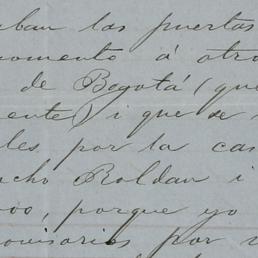 aban las puertas
omento á otro
de Bogotá (que
ente) i que se
les, por la cas
cho Roldan i
os, porque yo
ovisorios por